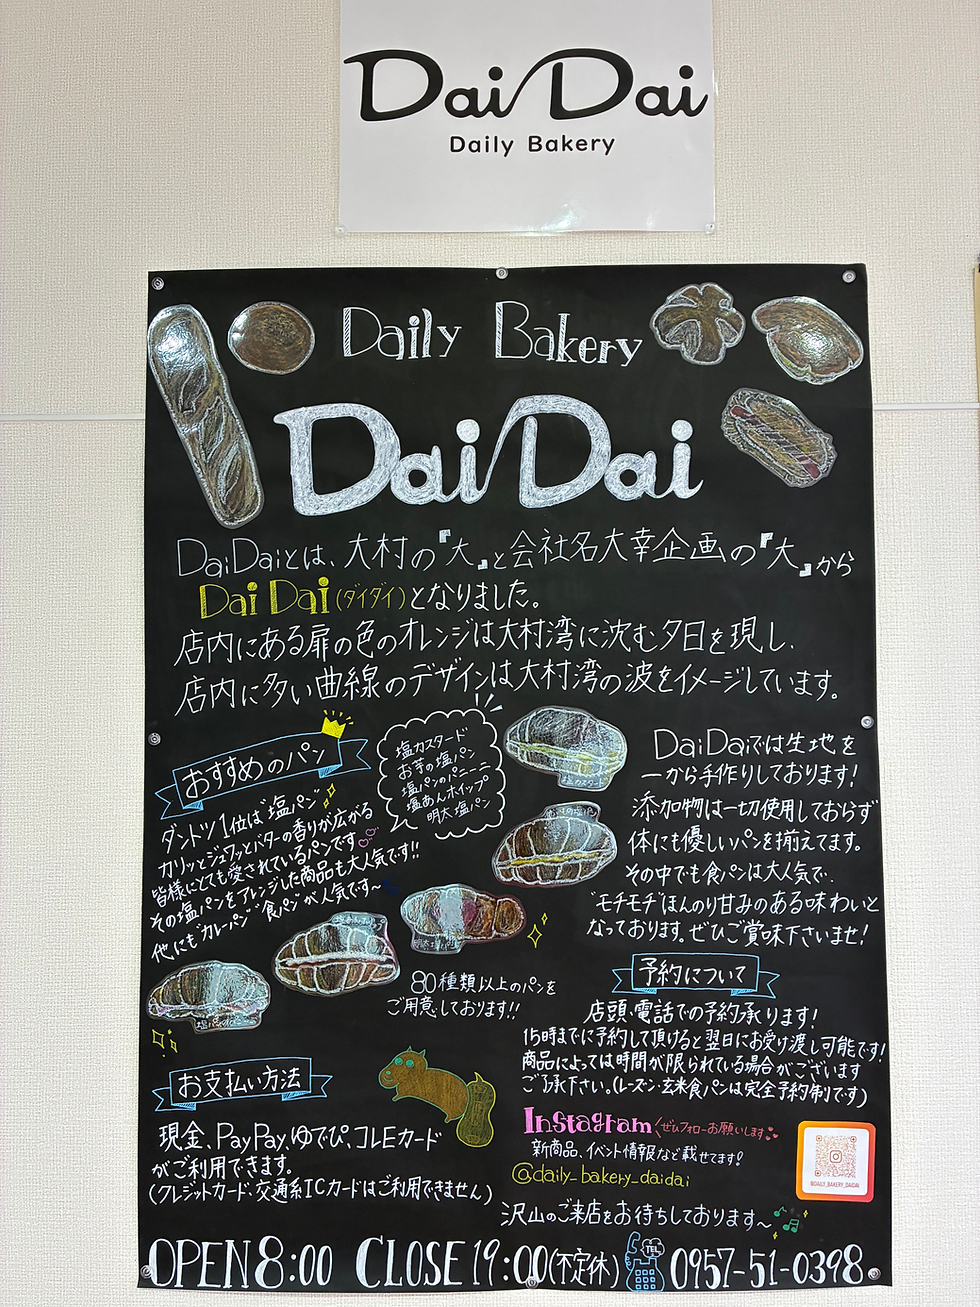 DaiDai
Daily Bakery
Daily Bakery
DaiDai
DaiDaiとは、大村の『大』と会社名大幸企画の『大』から
DaiDai(ダイダイ)となりました。
店内にある扉の色のオレンジは大村湾に沈む夕日を現し、
店内に多い曲線のデザインは大村湾の波をイメージしています。
おすすめのパン
ダントツ1位は"塩パン"
カリッとジュワッとバターの香りが広がる
皆様にとても愛されているパンです
その塩パンをアレンジした商品も大人気です!!
他にも"カレーパン" "食パン"が人気です~
塩カスタード
お芋の塩パン
塩パンのパニーニ
塩あんホイップ
明太塩パン
80種類以上のパンを
ご用意しております!!
DaiDaiでは生地を
一から手作りしております!
添加物は一切使用しておらず
体にも優しいパンを揃えてます。
その中でも食パンは大人気で、
"モチモチ"ほんのり甘みのある味わいと
なっております。ぜひご賞味下さいませ!
予約について
店頭、電話での予約承ります!
15時までに予約して頂けると翌日にお受け渡し可能です!
商品によっては時間が限られている場合がございます
ご了承下さい。(レーズン・玄米食パンは完全予約制です)
お支払い方法
現金、PayPay、ゆでぴ、コレEカード
がご利用できます。
(クレジットカード、交通系ICカードはご利用できません)
Instagram ぜひフォローお願いします
新商品、イベント情報など載せてます!
@daily_bakery_daidai
@DAILY_BAKERY_DAIDAI
沢山のご来店をお待ちしております~
OPEN 8:00 CLOSE 19:00(不定休) TEL 0957-51-0398